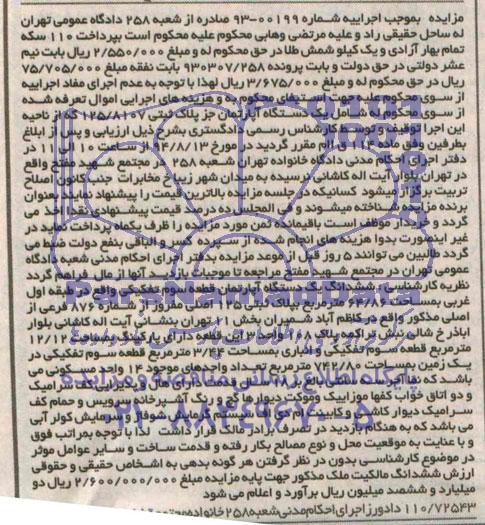 مزایده بموجب اجراییه شماره ۰۰۱۹۹-۹۳ صادره از شعبه ۲۵۸ دادگاه عمومی تهران
له ساحل حقیقی راد و علیه مرتضی وهابی محکوم علیه محکوم است بپرداخت ۱۱۰ سکه
تمام بهار آزادی و یک کیلو شمش طلا در حق محکوم له و مبلغ ۲/۵۵۰/۰۰۰ ریال بابت نیم
عشر دولتی در حق دولت و بابت پرونده ۹۳۰۳۰۷/۲۵۸ بابت نفقه مبلغ ۷۵/۷۰۵/۰۰۰
ریال در حق محکوم له و مبلغ ۳/۶۷۵/۰۰۰ ریال لهذا با توجه به عدم اجرای مفاد اجراییه
از سوی محکوم علیه جهت استیفای محکوم به و هزینه های اجرایی اموال تعرفه شده
از سوی محکوم له شامل یک دستگاه آپارتمان جز پلاک ثبتی ۱۲۵/۸۱۰۷ که از ناحیه
این اجرا توقیف و توسط کارشناس رسمی دادگستری بشرح ذیل ارزیابی و پس از ابلاغ
بطرفین وفق ماده مقرر گردید در مورخ ۹۴/۸/۱۳ ساعت ۱۰ الی ۱۱ در
دفتر اجرای احکام مدنی دادگاه خانواده تهران شعبه ۲۵۸ در مجتمع شهید مفتح واقع
در تهران بلوار آیت اله کاشانی نرسیده به میدان شهر زیبا خ مخابرات جنب کانون اصلاح
تربیت برگزار میشود کسانیکه در جلسه مزایده بالاترین قیمت را پیشنهاد نمایند بعنوان
برنده مزایده شناخته میشوند و فی المجلس ده درصد قیمت پیشنهادی نقدا اخذ می
گردد و خریدار موظف است باقیمانده ثمن مورد مزایده را ظرف یکماه پرداخت نماید در
غیر اینصورت بدوا هزینه های انجام شده از سپرده کسر و الباقی بنفع دولت ضبط می
گردد طالبین می توانند ۵ روز قبل از موعد مزایده بدفتر اجرای احکام مدنی شعبه دادگاه
عمومی تهران در مجتمع شهید مفتح مراجعه تا موجبات بازدید آنها از مال فراهم گردد
نظریه کارشناسی: ششدانگ یک دستگاه آپارتمان قطعه سوم تفکیکی واقع در طبقه اول
غربی بمساحت پلاک ثبتی اصلی مفروز از شماره ۸۷۶ فرعی از
اصلی مذکور واقع در کاظم آباد شمیران بخش ۱۱ تهران بنشانی آیت اله کاشانی بلوار
اباذر خ شاله نبش تراکمه پلاک واحد این قطعه دارای پارکینگ بمساحت ۱۲/۱۲
مترمربع قطعه سوم تفکیکی و انباری بمساحت ۳/۲۴ مترمربع قطعه سوم تفکیکی در
یک زمین بمساحت ۷۴۲/۸۰ مترمربع تعداد واحدهای موجود ۱۴ واحد مسکونی می
باشد که نما آجر سرامیک
و دو اتاق خواب کفها موزاییک و موکت دیوار ها گچ و رنگ آشپرخانه سرویس و حمام کف
سرامیک دیوار کاشی و کابینت ام دی اف سیستم گرمایش شوفاژ و سرمایش کولر آبی
می باشد که به هنگام بازدید در تصرف برادر مالک قرار داشت لذا با توجه بمراتب فوق
و با عنایت به موقعیت محل و نوع مصالح بکار رفته و قدمت ساخت و سایر عوامل موثر
در موضوع کارشناسی بدون در نظر گرفتن هر گونه بدهی به اشخاص حقیقی و حقوقی
ارزش ششدانگ مالکیت ملک مذکور جهت پایه مزایده مبلغ ۲/۶۰۰/۰۰۰/۰۰۰ ریال دو
میلیارد و ششصد میلیون ریال برآورد و اعلام می شود
۱۱۰/۷۲۵۴۳ دادورز اجرای احکام مدنی شعبه ۲۵۸ خانواده